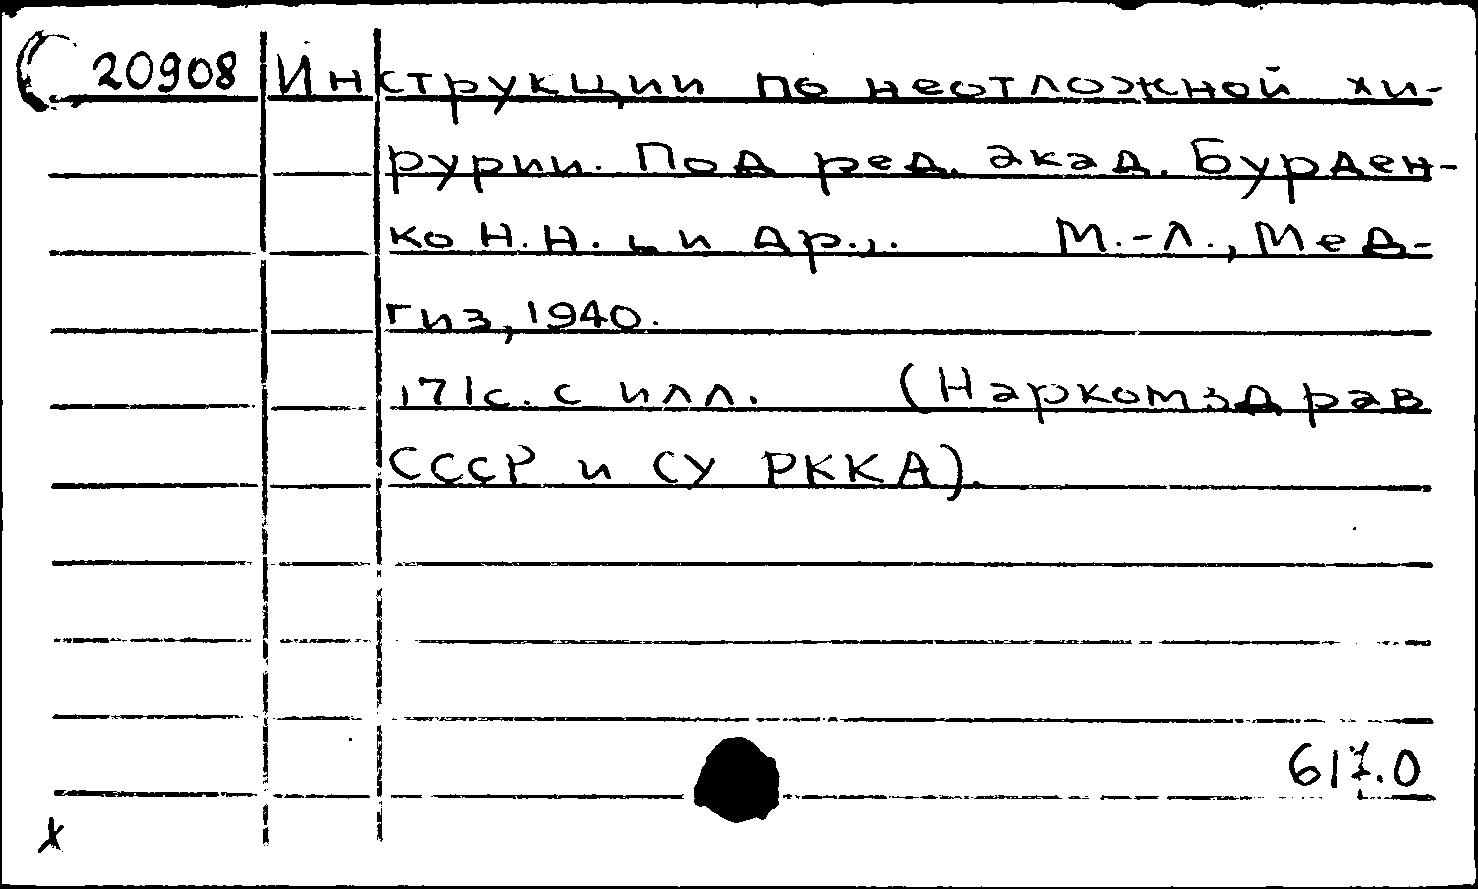 20908 Инструкции по неотложной хи-
рурии. Под ред. акад. Бурден-
ко Н.Н. и др. М.-Л., Мед-
гиз, 1940.
171с. с илл. (Наркомздрав
СССР и СУ РККА).
617.0